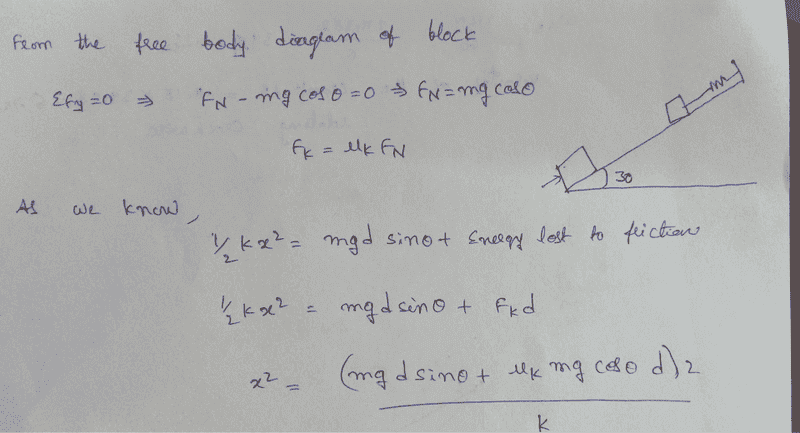 From the free body diagram of block
ΣFy = 0 ⇒ FN - mg cos θ = 0 ⇒ FN = mg cosθ
fk = μk FN
30
As we know,
1/2 kx² = mgd sinθ + Energy lost to friction
1/2 kx² = mgd sinθ + Fkd
x² = (mg d sinθ + μk mg cosθ d) 2
k